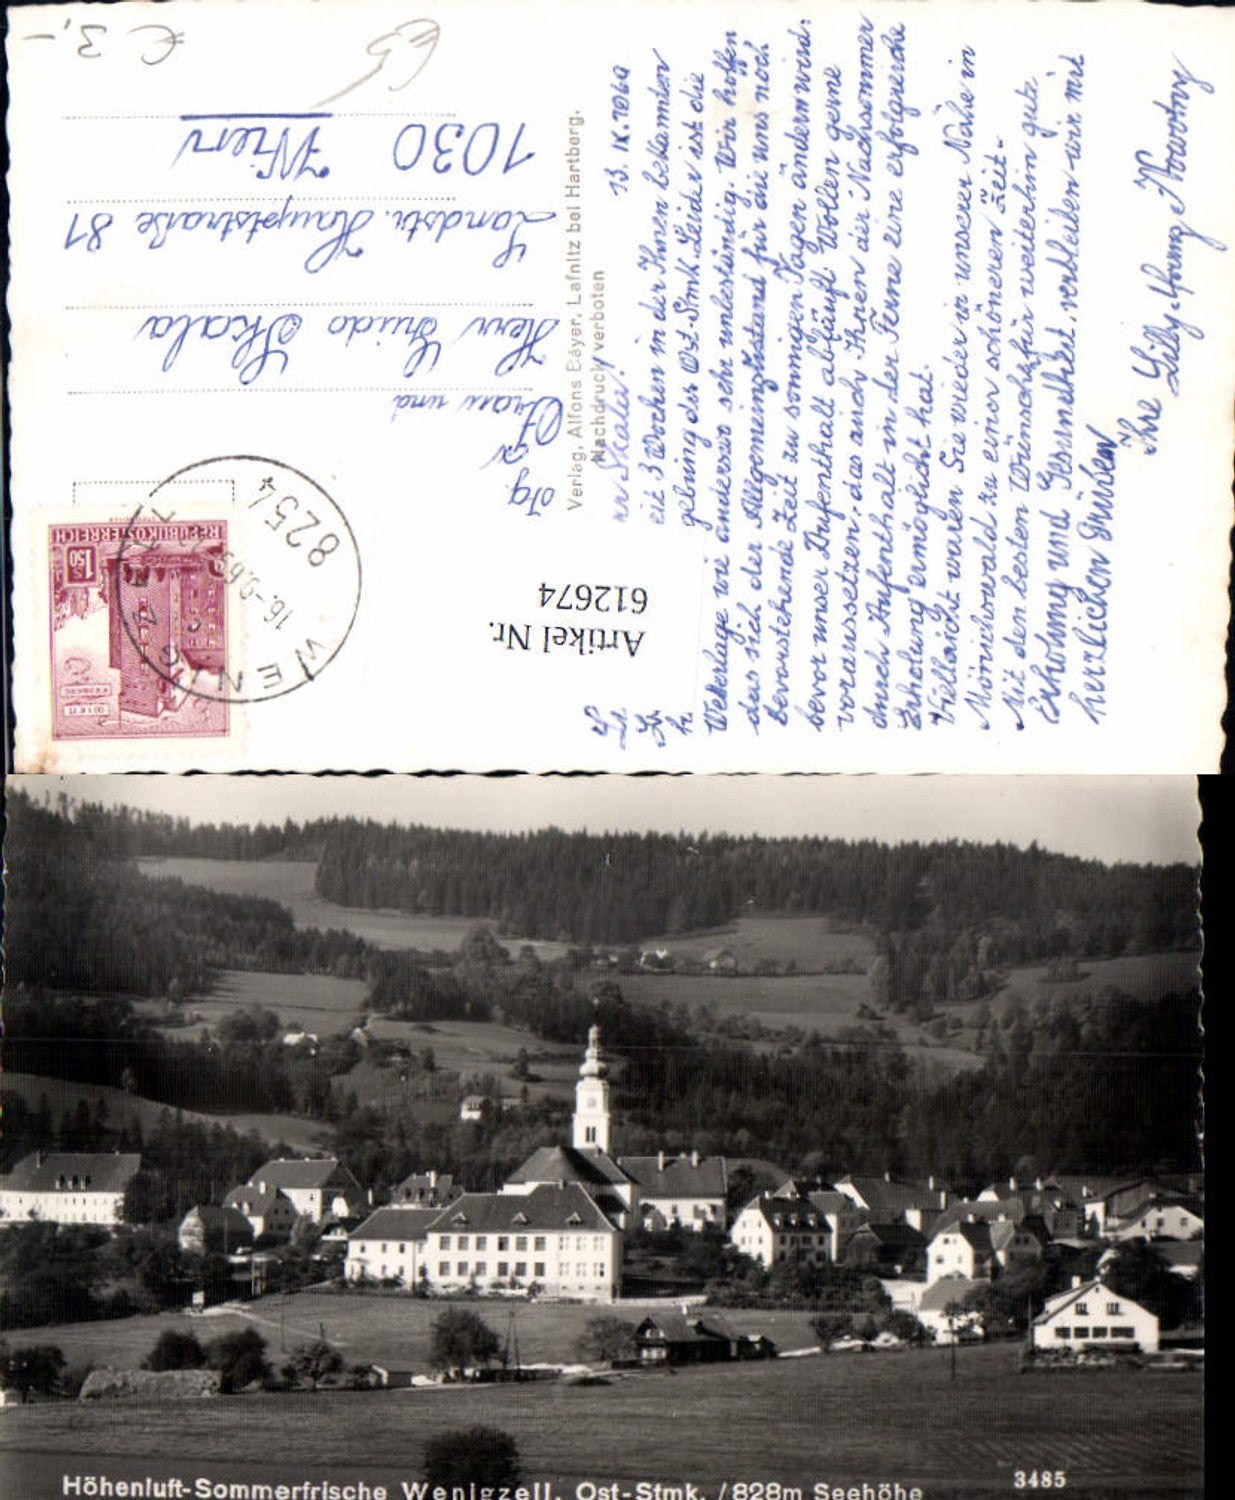 € 3,-
€5
Frau und
Herr Guido Skala
Landstr. Hauptstraße 81
1030 Wien
REPUBLIK ÖSTERREICH
S 1.50
WENIGZELL
16.-9.69
8254
Verlag, Alfons Bayer, Lafnitz bei Hartberg.
Nachdruck verboten
Artikel Nr.
612674
13. IX. 1969
Skala!
3 Wochen in der Ihnen bekannten
der Ost-Stmk. Leider ist die
Wetterlage wie anderswo sehr unbeständig. Wir hoffen
das sich der Allgemeinzustand für die uns noch
bevorstehende Zeit zu sonnigen Tagen ändern wird,
bevor unser Aufenthalt abläuft. Wollen gerne
voraussetzen, das auch Ihnen der Nachsommer
durch Aufenthalt in der Ferne eine erfolgreiche
Erholung ermöglicht hat.
Vielleicht waren Sie wieder in unserer Nähe in
Mönichwald zu einer schöneren Zeit.
Mit den besten Wünschen für weiterhin gute
Erholung und Gesundheit, verbleiben wir mit
herzlichen Grüßen
Ihre Lilly u. Franz Nowotny
Höhenluft-Sommerfrische Wenigzell, Ost-Stmk. /828m Seehöhe
3485